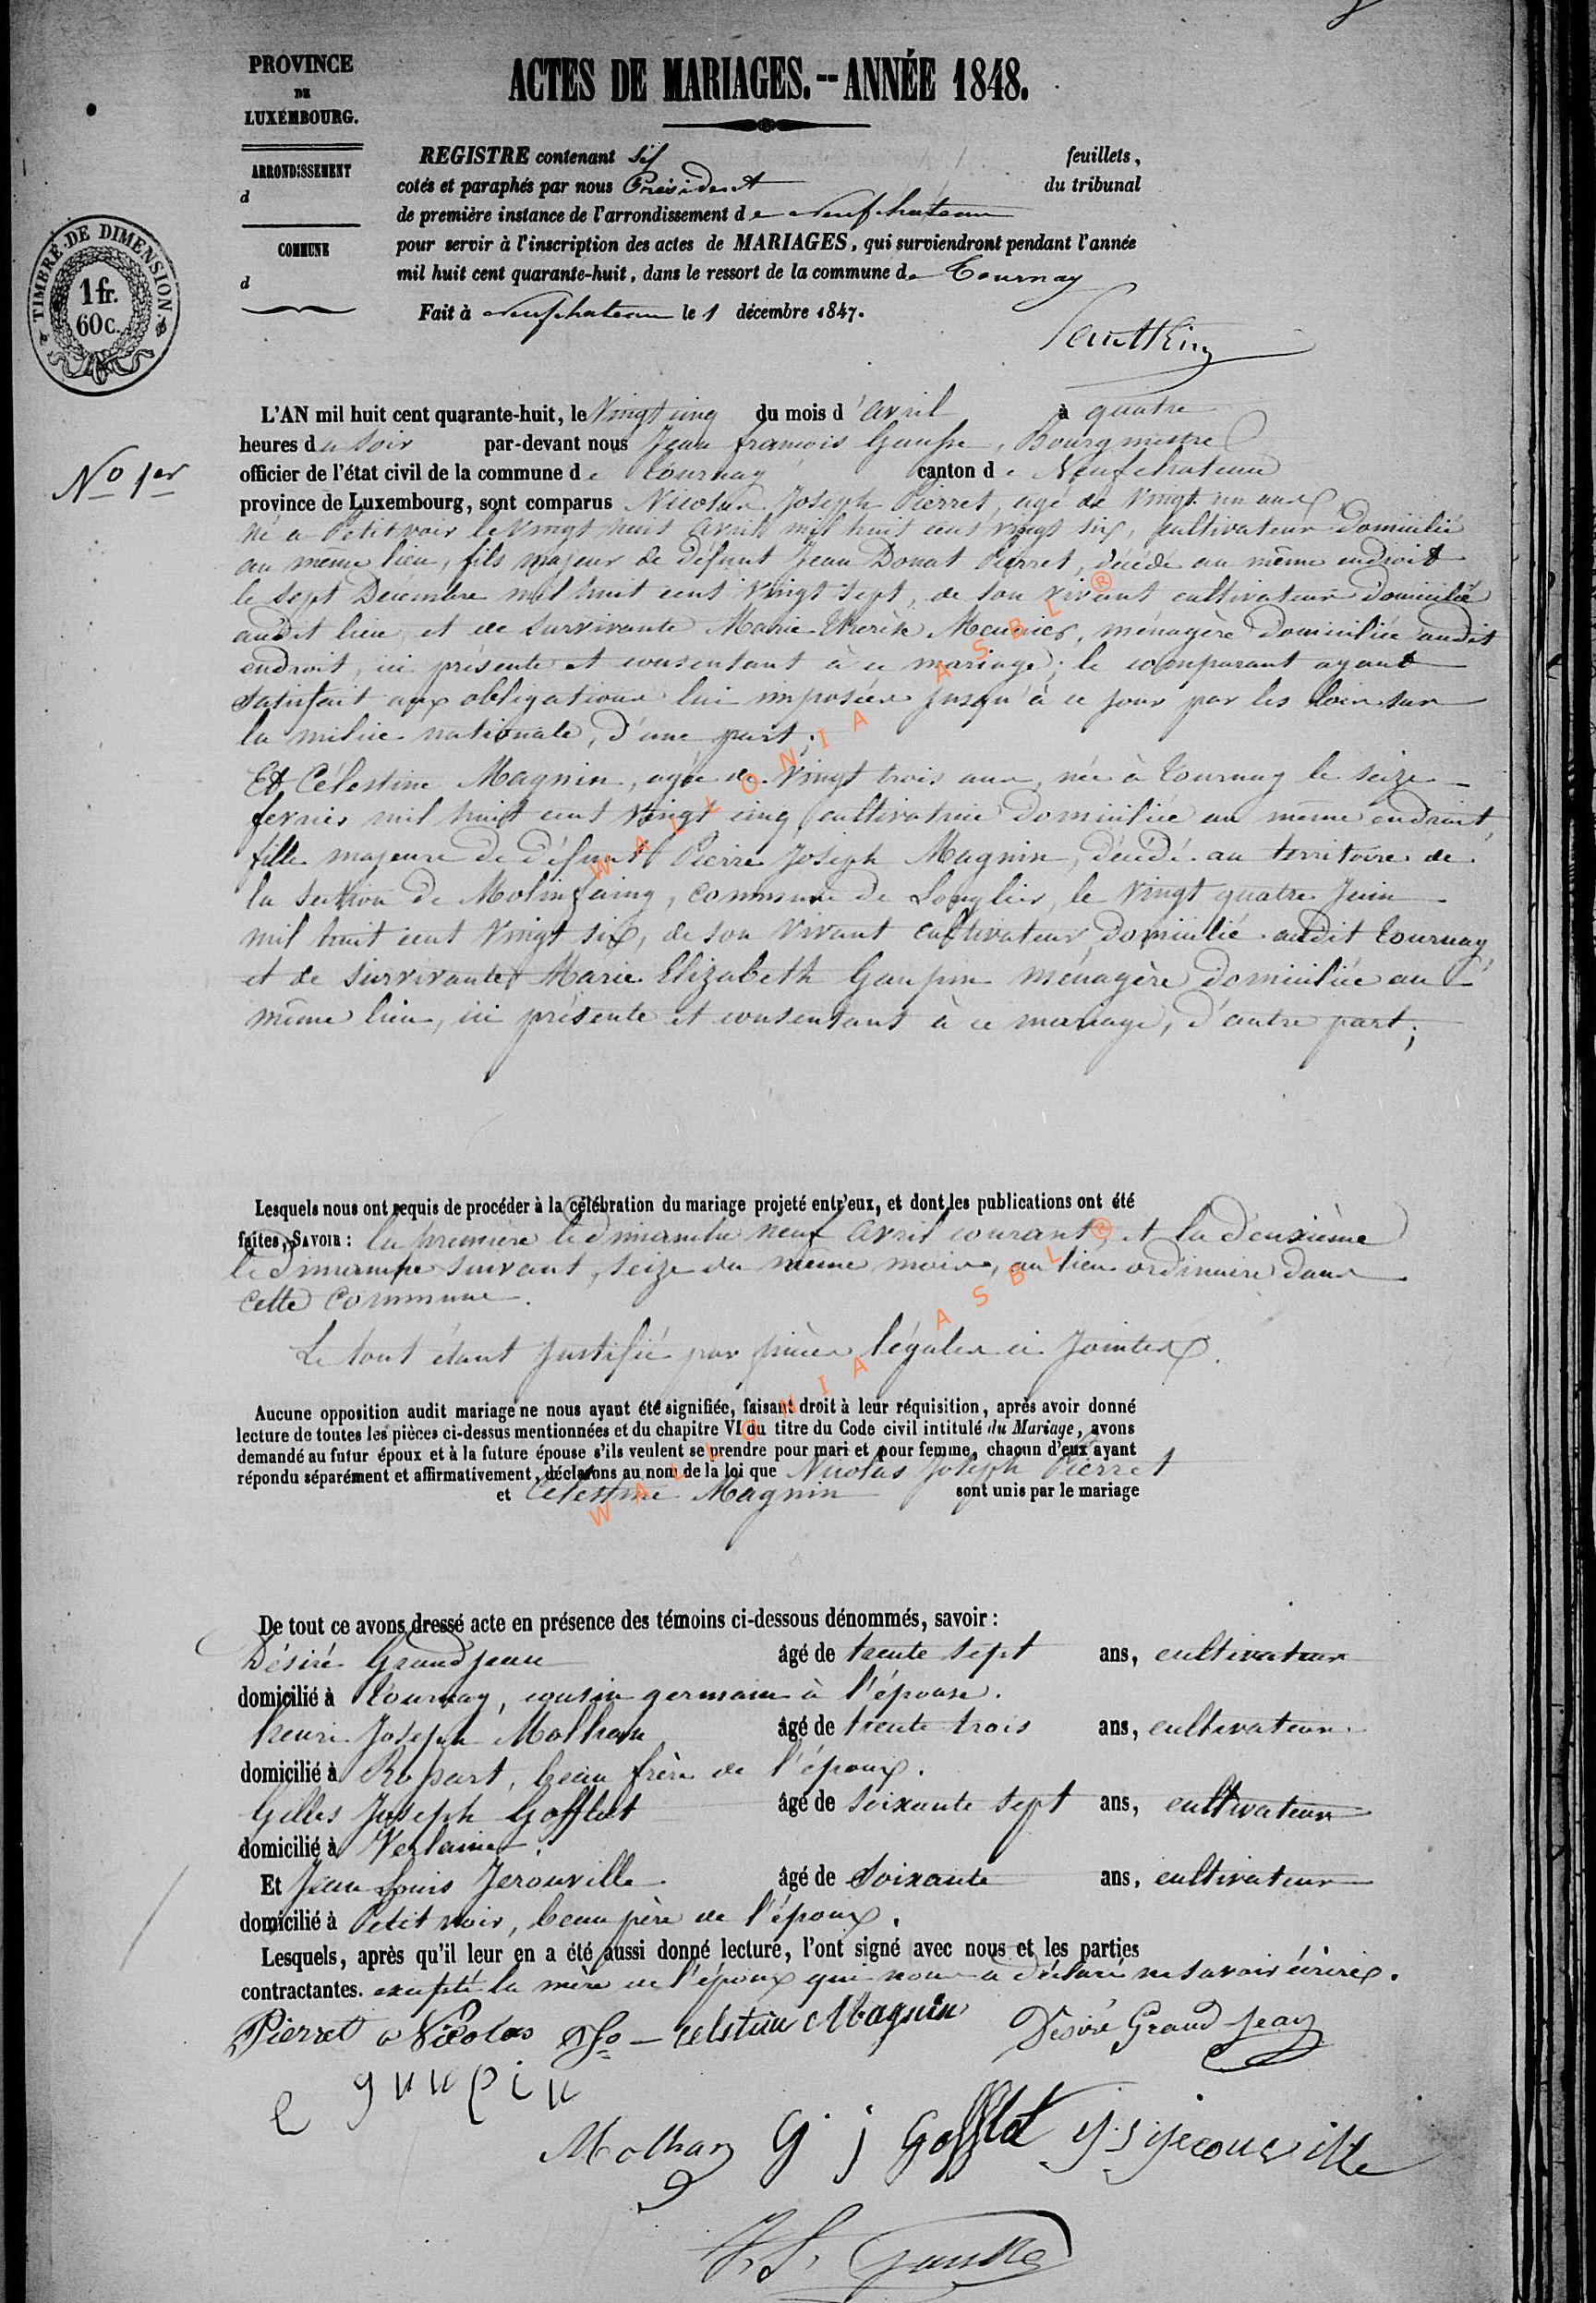 PROVINCE
DE
LUXEMBOURG.
ARRONDISSEMENT
d
COMMUNE
d
TIMBRE DE DIMENSION.
1 fr.
60 c.
ACTES DE MARIAGES.--ANNÉE 1848.
REGISTRE contenant six feuillets,
cotés et paraphés par nous Président du tribunal
de première instance de l'arrondissement de Neufchateau
pour servir à l'inscription des actes de MARIAGES, qui surviendront pendant l'année
mil huit cent quarante-huit, dans le ressort de la commune de Tournay
Fait à Neufchateau le 1 décembre 1847.
No 1er
L'AN mil huit cent quarante-huit, le Vingt cinq du mois d'avril à quatre
heures du soir par-devant nous Jean francois , Bourgmestre
officier de l'état civil de la commune de Tournay canton de Neufchateau
province de Luxembourg, sont comparus Nicolas Joseph Pierret, agé de Vingt un ans,
né a Petitvoir le Vingt huit avril mil huit cent vingt six, cultivateur domicilié
au même lieu, fils majeur de défunt Jean Donat Pierret, décédé au même endroit
le sept Décembre mil huit cent vingt sept, de son vivant cultivateur domicilié
audit lieu, et de survivante Marie Thérèse Meunier, ménagère domiciliée audit
endroit, ici présente et consentant à ce mariage; le comparant ayant
satisfait aux obligations lui imposées jusqu'à ce jour par les lois sur
la milice nationale, d'une part;
Et Célestine Magnin, agée de Vingt trois ans, née à Tournay le seize
fevrier mil huit cent vingt cinq cultivatrice domiciliée au même endroit,
fille majeure de défunt Pierre Joseph Magnin, décédé au territoire de
la section de Molinfaing, commune de Longlier, le vingt quatre Juin
mil huit cent Vingt six, de son Vivant cultivateur domicilié audit Tournay,
et de survivante Marie Elizabeth Gaupin ménagère domiciliée au
même lieu, ici présente et consentant à ce mariage, d'autre part;
Lesquels nous ont requis de procéder à la célébration du mariage projeté entr'eux, et dont les publications ont été
faites, SAVOIR : la première le dimanche neuf avril courant, et la deuxième
le dimanche suivant, seize du même mois, au lieu ordinaire dans
cette commune.
Le tout étant justifié par pièces légales ci Jointes.
Aucune opposition audit mariage ne nous ayant été signifiée, faisant droit à leur réquisition, après avoir donné
lecture de toutes les pièces ci-dessus mentionnées et du chapitre VI du titre du Code civil intitulé du Mariage, avons
demandé au futur époux et à la future épouse s'ils veulent se prendre pour mari et pour femme, chacun d'eux ayant
répondu séparément et affirmativement, déclarons au nom de la loi que Nicolas Joseph Pierret
et Célestine Magnin sont unis par le mariage
De tout ce avons dressé acte en présence des témoins ci-dessous dénommés, savoir :
Désiré Grandjean âgé de trente sept ans, cultivateur
domicilié à Tournay, cousin germain à l'épouse.
henri Joseph Molhan âgé de trente trois ans, cultivateur
domicilié à Rossart, beau frère de l'époux.
Gilles Joseph Gofflot âgé de soixante sept ans, cultivateur
domicilié à Verlaine.
Et Jean Louis Jerouville âgé de Soixante ans, cultivateur
domicilié à Petitvoir, beau père de l'époux.
Lesquels, après qu'il leur en a été aussi donné lecture, l'ont signé avec nous et les parties
contractantes. excepté la mère de l'époux qui nous a déclaré ne savoir écrire.
Pierret Nicolas Celstine Magnin Désiré Grandjean
e gaupin
Molhan G j Gofflot
WALLONIA ASBL ®
WALLONIA ASBL ®